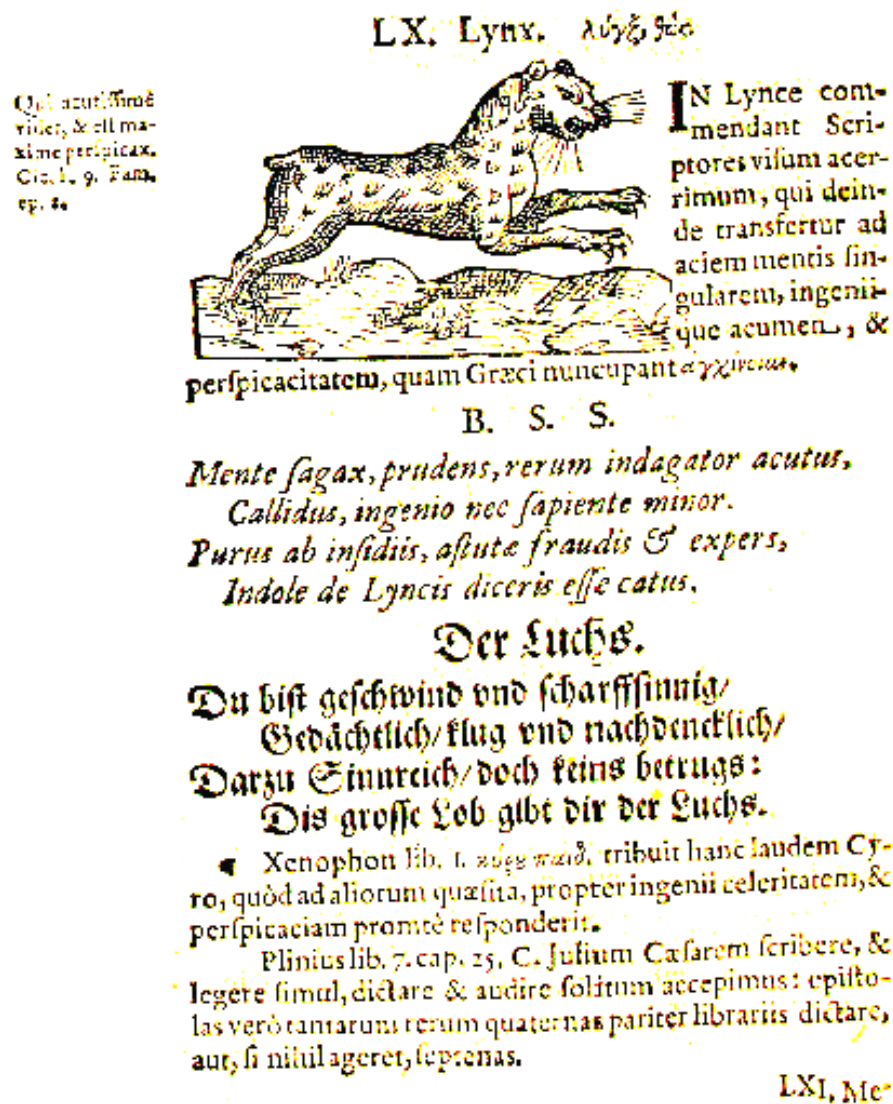 LX. Lynx. λύγξ, θώς
Qui acutiſſimè
videt, & eſt ma-
ximè perſpicax.
Cic. l. 9. Fam.
ep. 2.
IN Lynce com-
mendant Scri-
ptores viſum acer-
rimum, qui dein-
de transfertur ad
aciem mentis ſin-
gularem, ingenii-
que acumen, &
perſpicacitatem, quam Græci nuncupant
B. S. S.
Mente ſagax, prudens, rerum indagator acutus,
Callidus, ingenio nec ſapiente minor.
Purus ab inſidiis, aſtutæ fraudis & expers,
Indole de Lyncis diceris eſſe catus.
Der Luchs.
Du biſt geſchwind vnd ſcharffſinnig/
Gedächtlich/ klug vnd nachdencklich/
Darzu Sinnreich/ doch keins betrugs:
Dis groſſe Lob gibt dir der Luchs.
¶ Xenophon lib. 1. tribuit hanc laudem Cy-
ro, quòd ad aliorum quæſita, propter ingenii celeritatem, &
perſpicaciam promtè reſponderit.
Plinius lib. 7. cap. 25. C. Julium Cæſarem ſcribere, &
legere ſimul, dictare & audire ſolitum accepimus: epiſto-
las verò tantarum rerum quaternas pariter librariis dictare,
aut, ſi nihil ageret, ſeptenas.
LXI. Me-